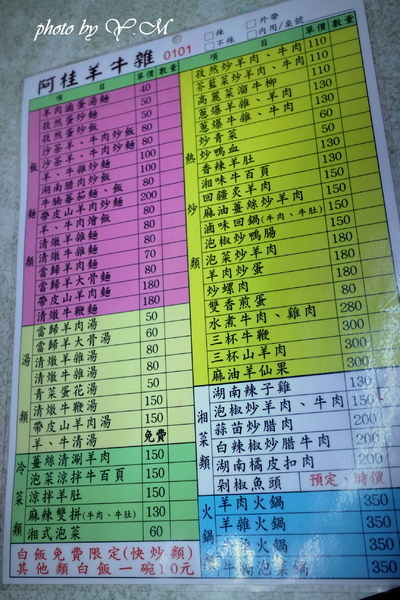 photo by Y.M
阿桂羊牛雜 0101
□辣 □外帶
□不辣 □內用/桌號
項目 單價 數量
飯麵類
羊肉滷蛋湯麵 40
孜然蛋炒麵 50
孜然蛋炒飯 50
沙茶羊、牛肉炒飯 80
沙茶羊、牛肉炒麵 80
羊、牛雜炒麵 100
湖南腊肉炒飯 100
牛腩蕃茄麵、飯 80
帶皮山羊肉炒麵 200
羊、牛肉燴飯 80
清燉羊雜麵 80
清燉牛雜麵 70
當歸羊肉麵 80
當歸羊大骨麵
帶皮山羊肉麵 180
清燉牛鞭麵 180
湯類
當歸羊肉湯 50
當歸羊大骨湯 60
清燉羊雜湯 80
清燉牛雜湯 80
青菜蛋花湯 50
清燉牛鞭湯 150
帶皮山羊肉湯 150
羊、牛清湯 免費
冷菜類
薑絲清涮羊肉 150
泡菜涼拌牛百頁 150
涼拌羊肚 150
麻辣雙拼(牛肉、牛肚) 130
湘式泡菜 60
白飯免費限定(快炒類)
其他類白飯一碗10元
項目 單價 數量
熱炒類
孜然炒羊肉、牛肉 110
芥藍菜炒羊肉、牛肉 110
高麗菜溜牛柳 130
蔥爆羊雜、羊肉 130
蔥爆牛雜、牛肉 130
炒青菜 60
炒鴨血
香辣羊肚 130
湘味牛百頁 150
回鍋炙羊肉 150
麻油薑絲炒羊肉 150
滷味回鍋(牛肉、牛肚) 150
泡椒炒鴨腸 180
泡菜炒羊肉 150
羊肉炒蛋 180
炒螺肉 180
雙香煎蛋 80
水煮牛肉、雞肉 280
三杯牛鞭 300
三杯山羊肉 300
麻油羊仙果 300
湘菜類
湖南辣子雞 130
泡椒炒羊肉、牛肉 150
蒜苗炒腊肉 200
白辣椒炒腊牛肉 200
湖南橘皮扣肉 200
剁椒魚頭 預定、時價
火鍋
羊肉火鍋 350
羊雜火鍋 350
火鍋 350
泡菜鍋 350